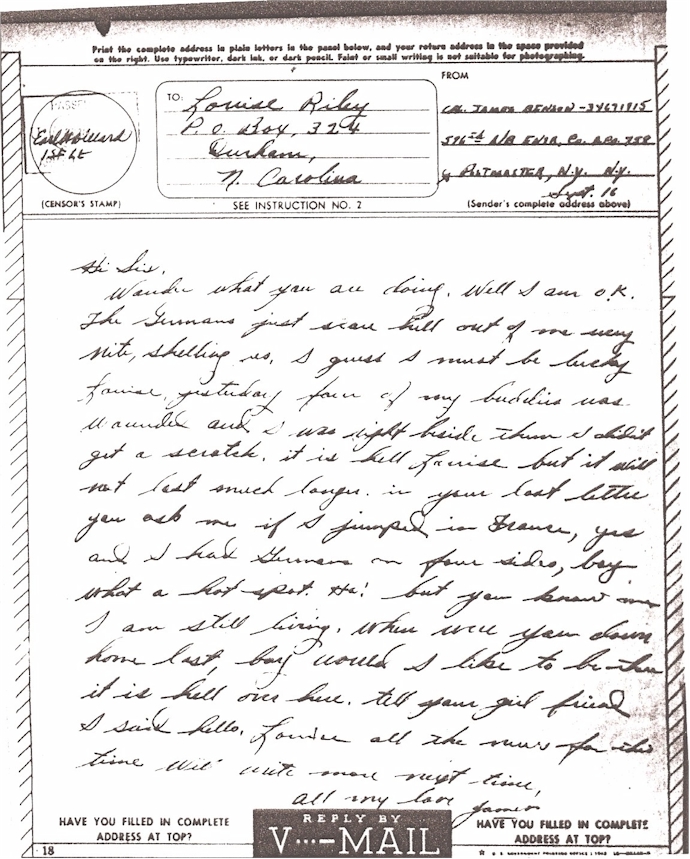 Print the complete address in plain letters in the panel below, and your return address in the space provided
on the right. Use typewriter, dark ink, or dark pencil. Faint or small writing is not suitable for photographing.
FROM
TO:
Louise Riley
P.O. Box, 324
Durham,
N. Carolina
JAMES BENSON - 34671915
596th A/B ENGR. Co. APO. 758
% POSTMASTER, N.Y. N.Y.
Sept. 16
PASSED
1st Lt
(CENSOR'S STAMP)
SEE INSTRUCTION NO. 2
(Sender's complete address above)
Hi Sis,
Wonder what you are doing. Well I am O.K.
The Germans just scare hell out of me every
nite, shelling us, I guess I must be lucky
Louise, yesterday four of my buddies was
wounded and I was right beside them I didn't
get a scratch. it is hell Louise but it will
not last much longer. in your last letter
you ask me if I jumped in France, yes
and I had Germans on four sides, boy
what a hot spot. Ha! but you know me
I am still living. When were you down
home last, boy would I like to be there
it is hell over here. tell your girl friend
I said hello. Louise all the news for this
time will write more next time,
all my love James
HAVE YOU FILLED IN COMPLETE
ADDRESS AT TOP?
REPLY BY
V···—MAIL
HAVE YOU FILLED IN COMPLETE
ADDRESS AT TOP?
18